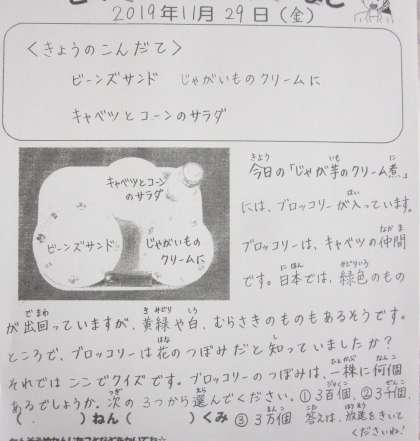 2019年11月29日（金）
＜きょうのこんだて＞
ビーンズサンド　じゃがいものクリームに
キャベツとコーンのサラダ
キャベツとコーン
のサラダ
ビーンズサンド
じゃがいもの
クリームに
今日の「じゃが芋のクリーム煮」
には、ブロッコリーが入っています。
ブロッコリーは、キャベツの仲間
です。日本では、緑色のもの
が出回っていますが、黄緑や白、むらさきのものもあるそうです。
ところで、ブロッコリーは花のつぼみだと知っていましたか？
それではここでクイズです。ブロッコリーのつぼみは、一株に何個
あるでしょうか。次の3つから選んでください。①3百個、②3千個、
（　　　）ねん（　　　）くみ ③3万個　答えは、放送をきいて
くださいね！